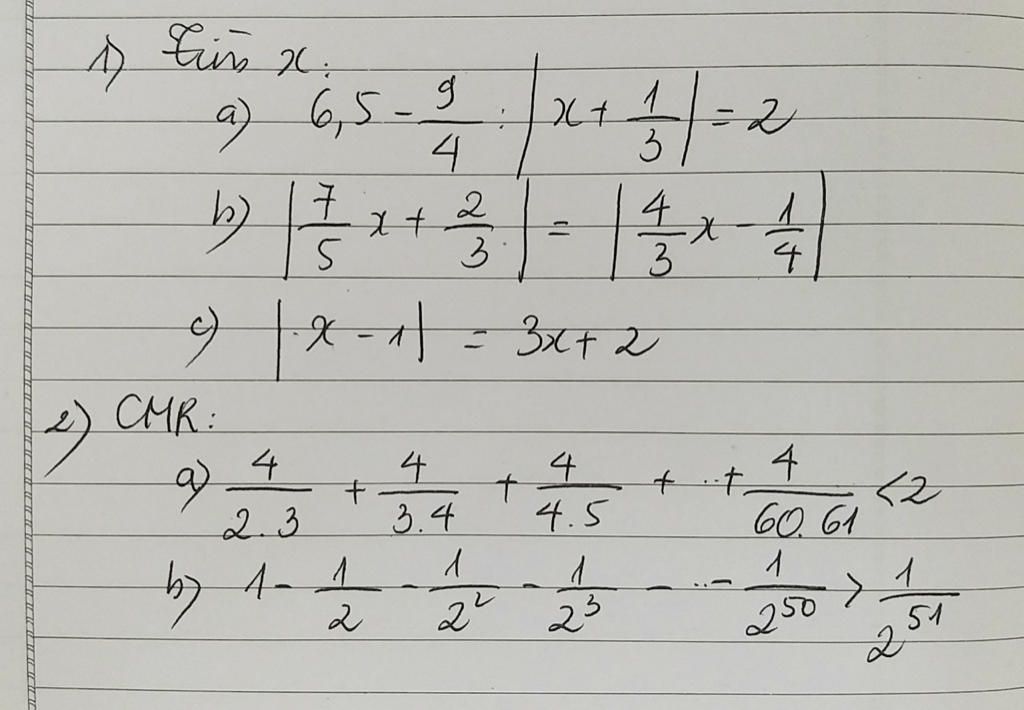 1) Tìm x:
a) 6,5 - 9/4 : |x + 1/3| = 2
b) |7/5 x + 2/3| = |4/3 x - 1/4|
c) |x - 1| = 3x + 2
2) CMR:
a) 4/2.3 + 4/3.4 + 4/4.5 + ..+ 4/60.61 < 2
b) 1 - 1/2 - 1/2² - 1/2³ - ..- 1/2⁵⁰ > 1/2⁵¹